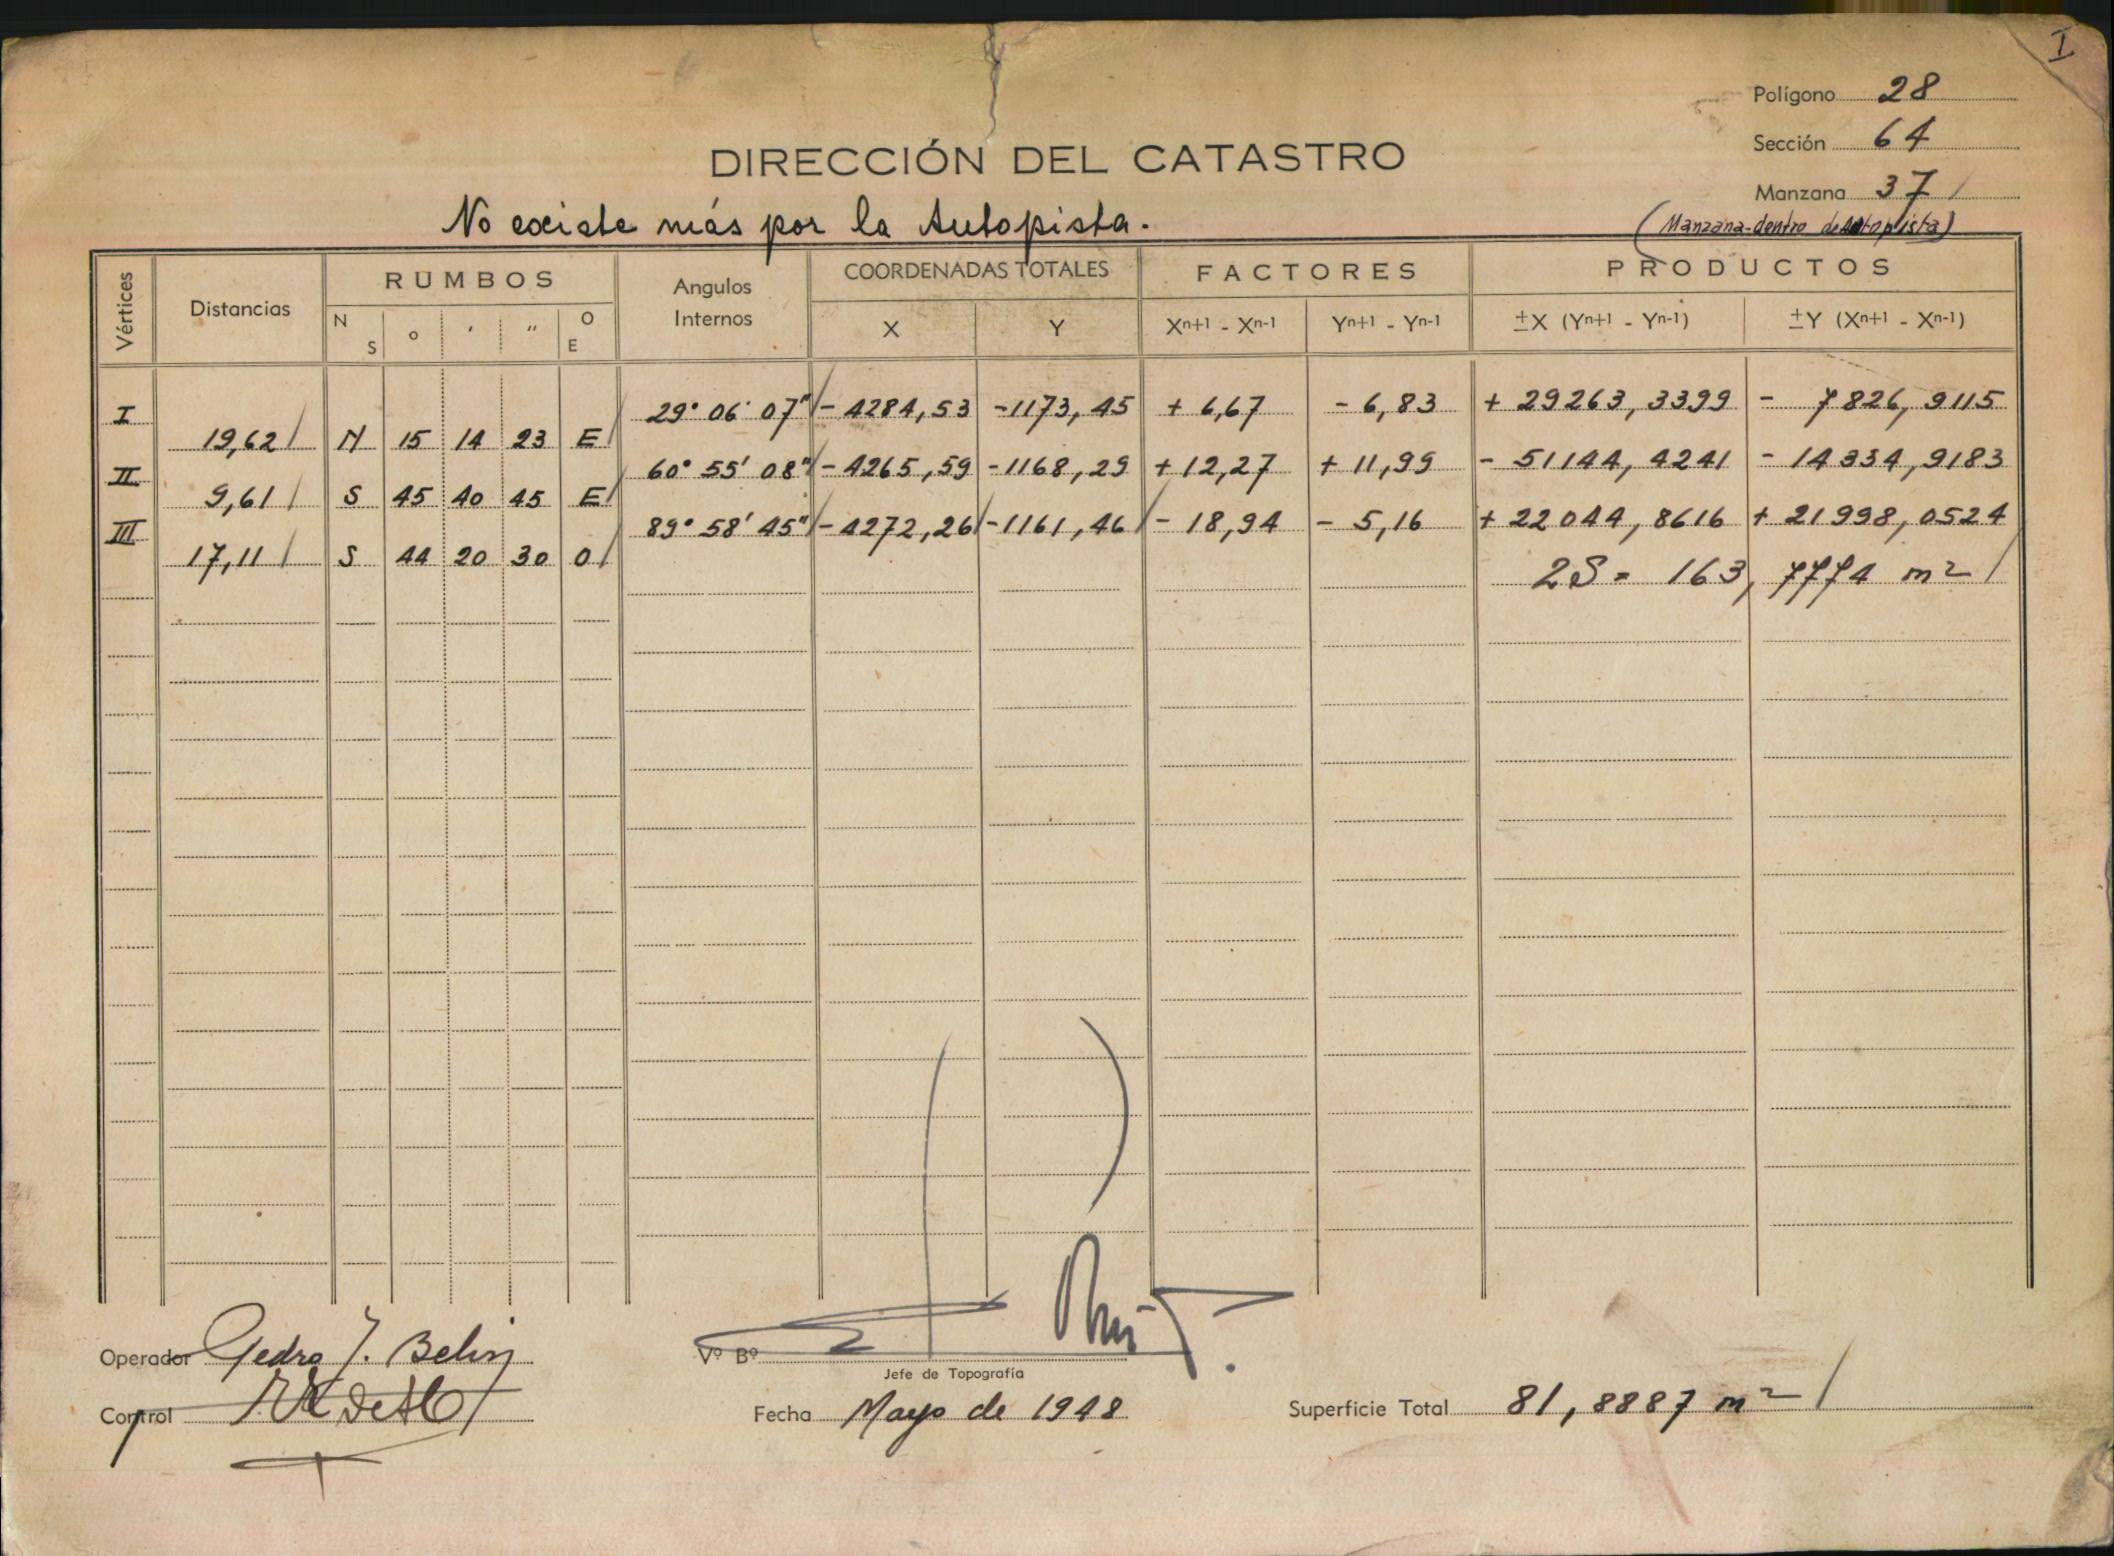 I
Polígono 28
Sección 64
Manzana 37
DIRECCIÓN DEL CATASTRO
No existe más por la Autopista.
(Manzana-dentro de Autopista)
Vértices Distancias RUMBOS Angulos Internos COORDENADAS TOTALES FACTORES PRODUCTOS
N S ° ' " O E X Y Xn+1 - Xn-1 Yn+1 - Yn-1 ±X (Yn+1 - Yn-1) ±Y (Xn+1 - Xn-1)
I 29° 06' 07" - 4284,53 -1173,45 + 6,67 - 6,83 + 29263,3399 - 7826,9115
19,62 N 15 14 23 E
II 60° 55' 08" - 4265,59 -1168,29 + 12,27 + 11,99 - 51144,4241 - 14334,9183
9,61 S 45 40 45 E
III 89° 58' 45" - 4272,26 -1161,46 - 18,94 - 5,16 + 22044,8616 + 21998,0524
17,11 S 44 20 30 O
2S = 163,7774 m2
Operador Pedro J. Belin
Vº Bº
Jefe de Topografía
Control
Fecha Mayo de 1948
Superficie Total 81,8887 m2